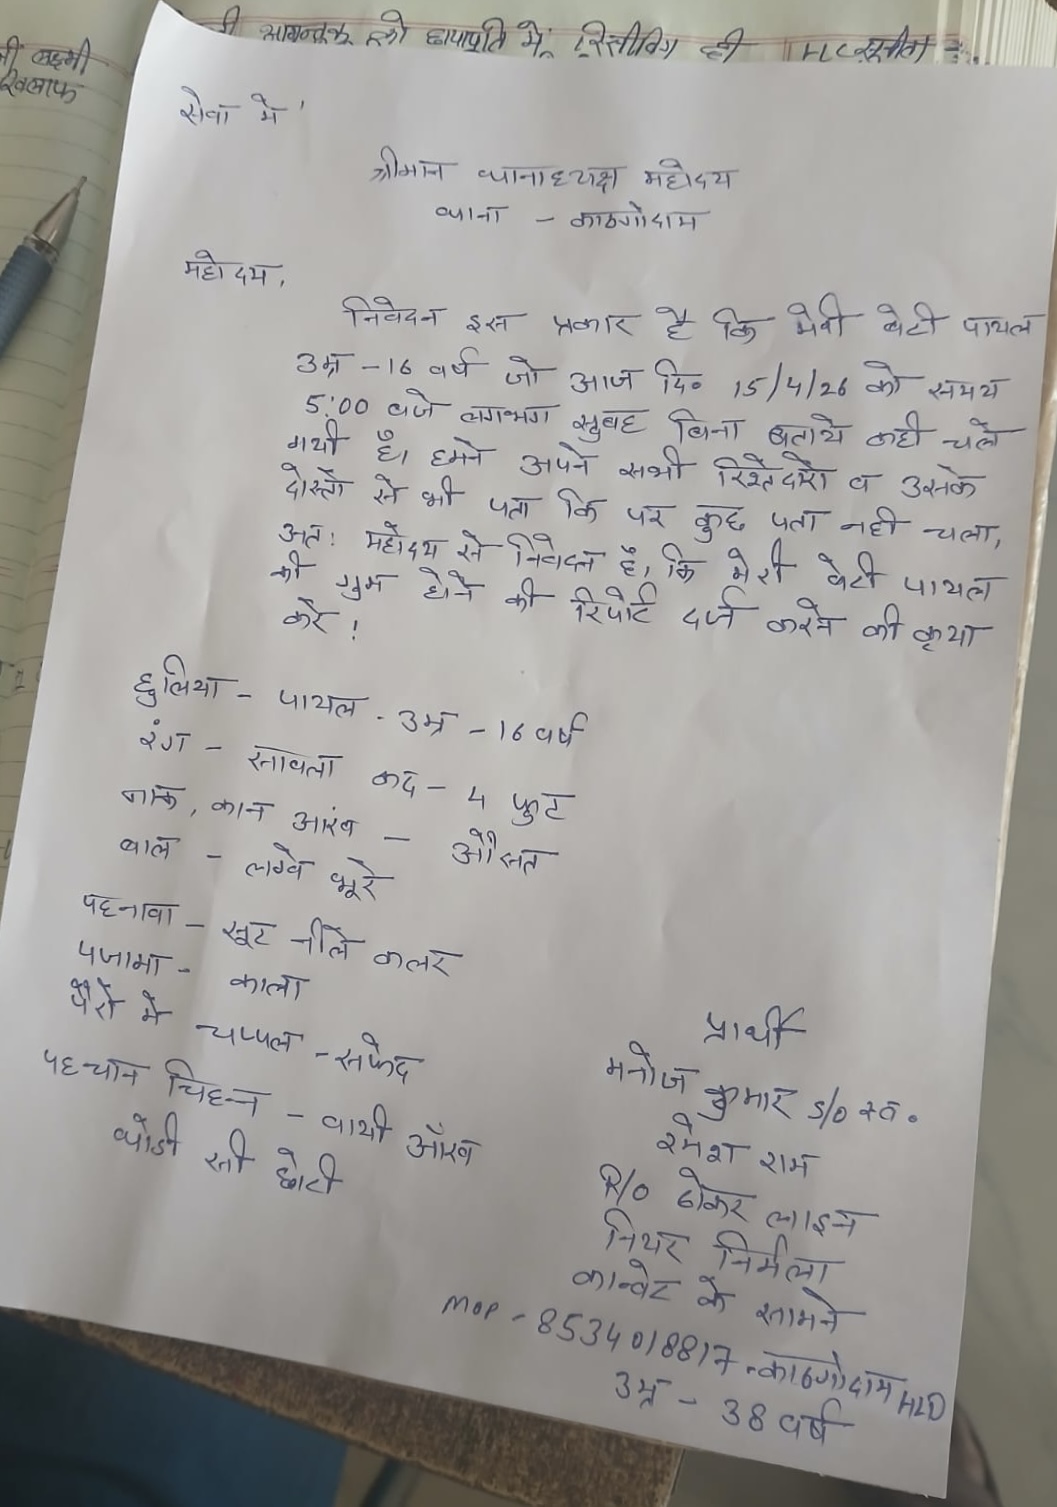 आगन्तुक को छायाप्रति में रिसीविंग दी
लक्ष्मी
खिलाफ
सेवा मे,
श्रीमान थानाध्यक्ष महोदय
थाना - काठगोदाम
महोदय,
निवेदन इस प्रकार है कि मेरी बेटी पायल
उम्र - 16 वर्ष जो आज दि० 15/4/26 को समय
5:00 वजे लगभग सुवह विना बताये कही चले
गयी है। हमने अपने सभी रिश्तेदारो व उसके
दोस्तो से भी पता कि पर कुछ पता नही चला,
अतः महोदय से निवेदन है, कि मेरी बेटी पायल
की गुम होने की रिपोर्ट दर्ज करने की कृपा
करे !
हुलिया - पायल - उम्र - 16 वर्ष
रंग - सावला कद - 4 फुट
नाक, कान आंख - औसत
बाल - लम्बे भूरे
पहनावा - सूट नीले कलर
पजामा - काला
पैरो मे चप्पल - सफेद
पहचान चिह्न - वायी आँख
थोडी सी छोटी
प्रार्थी
मनोज कुमार S/O स्व०
रमेश राम
R/O ठोकर लाइन
नियर निर्मला
कान्वेट के सामने
MOP - 8534018817 - काठगोदाम HLD
उम्र - 38 वर्ष